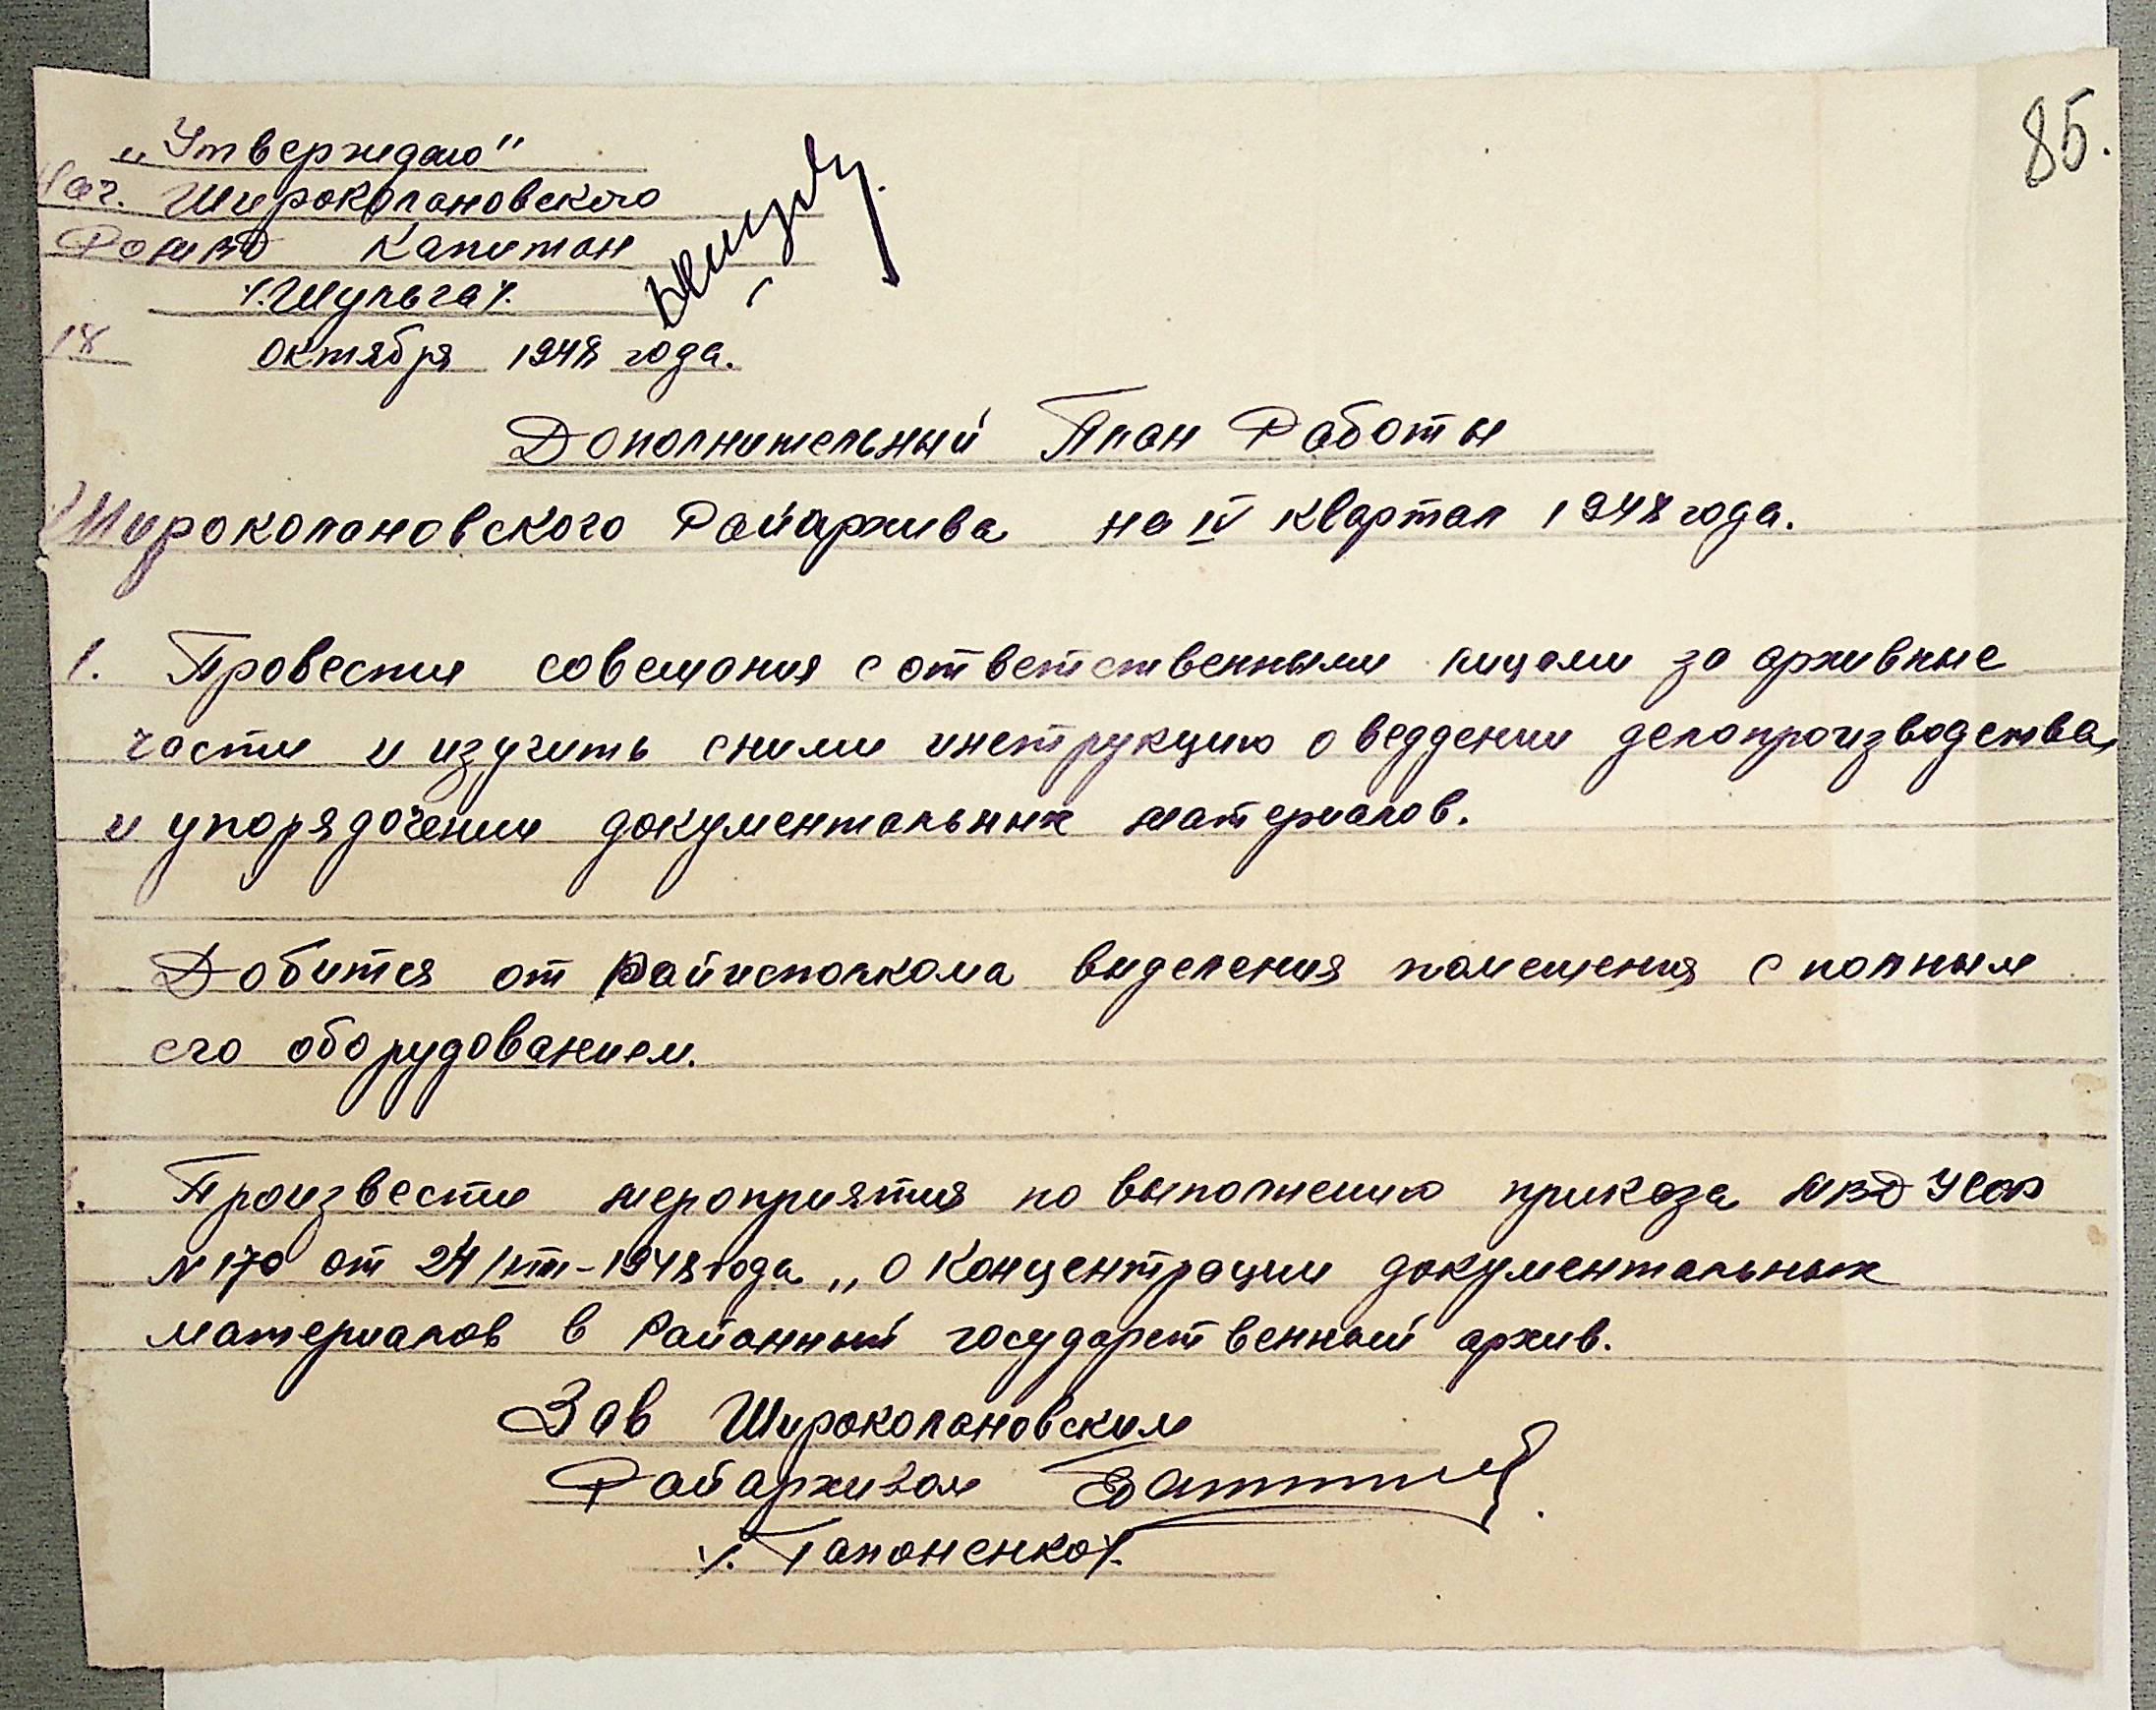 85.
„Утверждаю"
Нач. Широколановского
РОМВД Капитан
/.Шульга/.
18 октября 1948 года.
Дополнительный План Работы
Широколановского Райархива на IV квартал 1948 года.
1. Провести совещания с ответственными лицами за архивные
части и изучить сними инструкцию о веддении делопроизводства,
и упорядочении документальных материалов.
Добится от Райисполкома выделения помещения с полным
его оборудованием.
Произвести мероприятия по выполнению приказа МВД УССР
N 170 от 24/VIII-1948 года „о Концентрации документальных
материалов в Районный государственный архив.
Зав Широколановским
Райархивом
/.Гапоненко/.